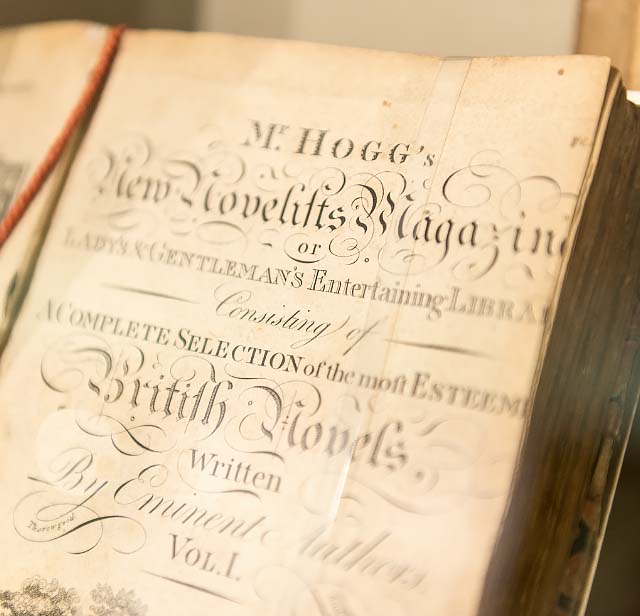 Mr HOGG's
New Noveliſts Magazine
or
LADY'S & GENTLEMAN'S Entertaining LIBRA
Consiſting of
A COMPLETE SELECTION of the moſt ESTEEM
Britiſh Novels,
Written
By Eminent Authors.
Thorowgood
VOL. I.